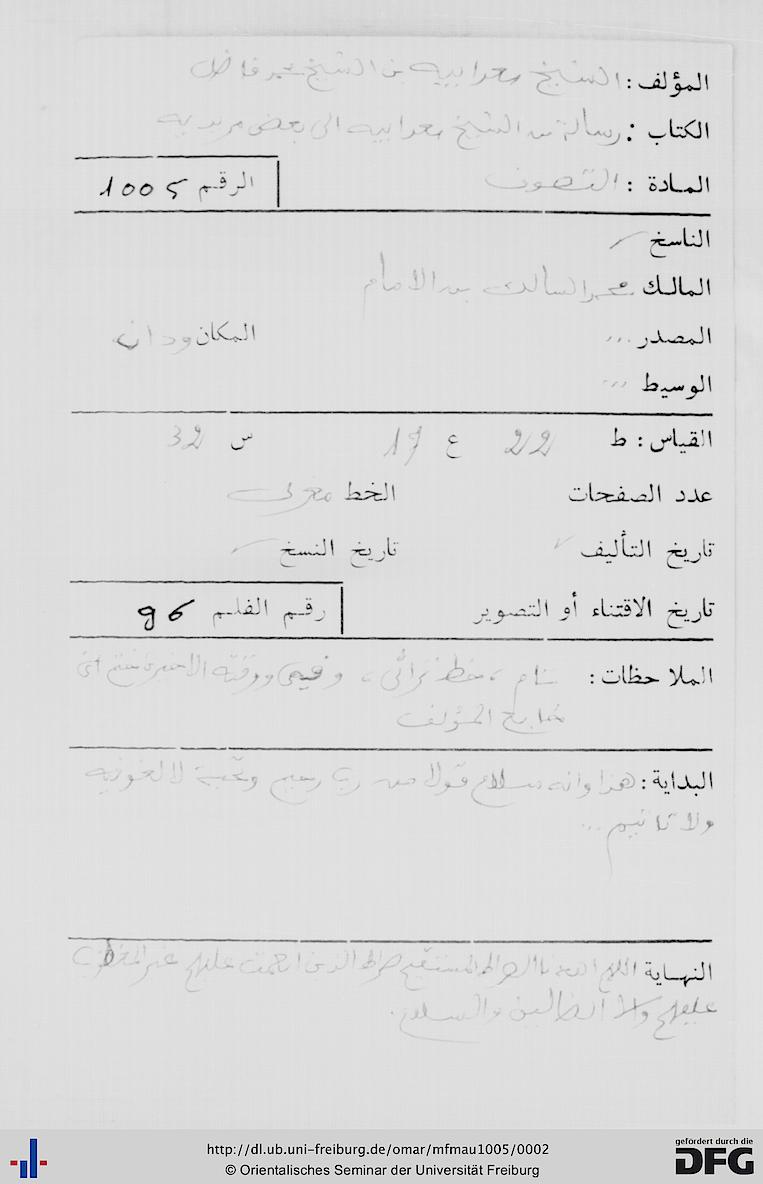 المؤلف : الشيخ سعد ابيه بن الشيخ محمد فاضل
الكتاب : رسالة من الشيخ سعد ابيه الى بعض مريديه
المادة : التصوف
الرقم 1005
الناسخ
المالك محمد السالك بن الامام
المصدر ...
المكان ودان
الوسيط ...
القياس : ط 22 ع 17 س 32
عدد الصفحات الخط مغربي
تاريخ التأليف تاريخ النسخ
تاريخ الاقتناء أو التصوير رقم الفلم 96
الملاحظات : تام ، خط قرائي ، وفي ورقته الاخيرة ختم
المؤلف
البداية : هذا وانه سلام قولا من رب رحيم وتحية لا لغو فيه
ولا تاثيم ...
النهاية اللهم اهدنا الصراط المستقيم صراط الذين انعمت عليهم غير المغضوب
عليهم ولا الضالين والسلام .
http://dl.ub.uni-freiburg.de/omar/mfmau1005/0002
© Orientalisches Seminar der Universität Freiburg
gefördert durch die
DFG